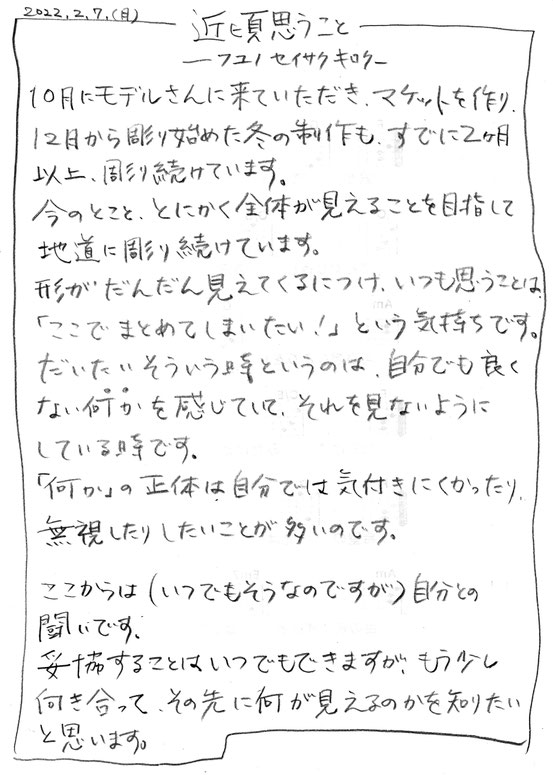 2022.2.7.(月)
近頃思うこと
―フユノ セイサク キロク―
10月にモデルさんに来ていただき、マケットを作り、
12月から彫り始めた冬の制作も、すでに2ヶ月
以上、彫り続けています。
今のとこと、とにかく全体が見えることを目指して
地道に彫り続けています。
形がだんだん見えてくるにつけ、いつも思うことは、
「ここでまとめてしまいたい!」という気持ちです。
だいたいそういう時というのは、自分でも良く
ない何かを感じていて、それを見ないように
している時です。
「何か」の正体は自分では気付きにくかったり、
無視したりしたいことが多いのです。
ここからは(いつでもそうなのですが)自分との
闘いです。
妥協することはいつでもできますが、もう少し
向き合って、その先に何が見えるのかを知りたい
と思います。